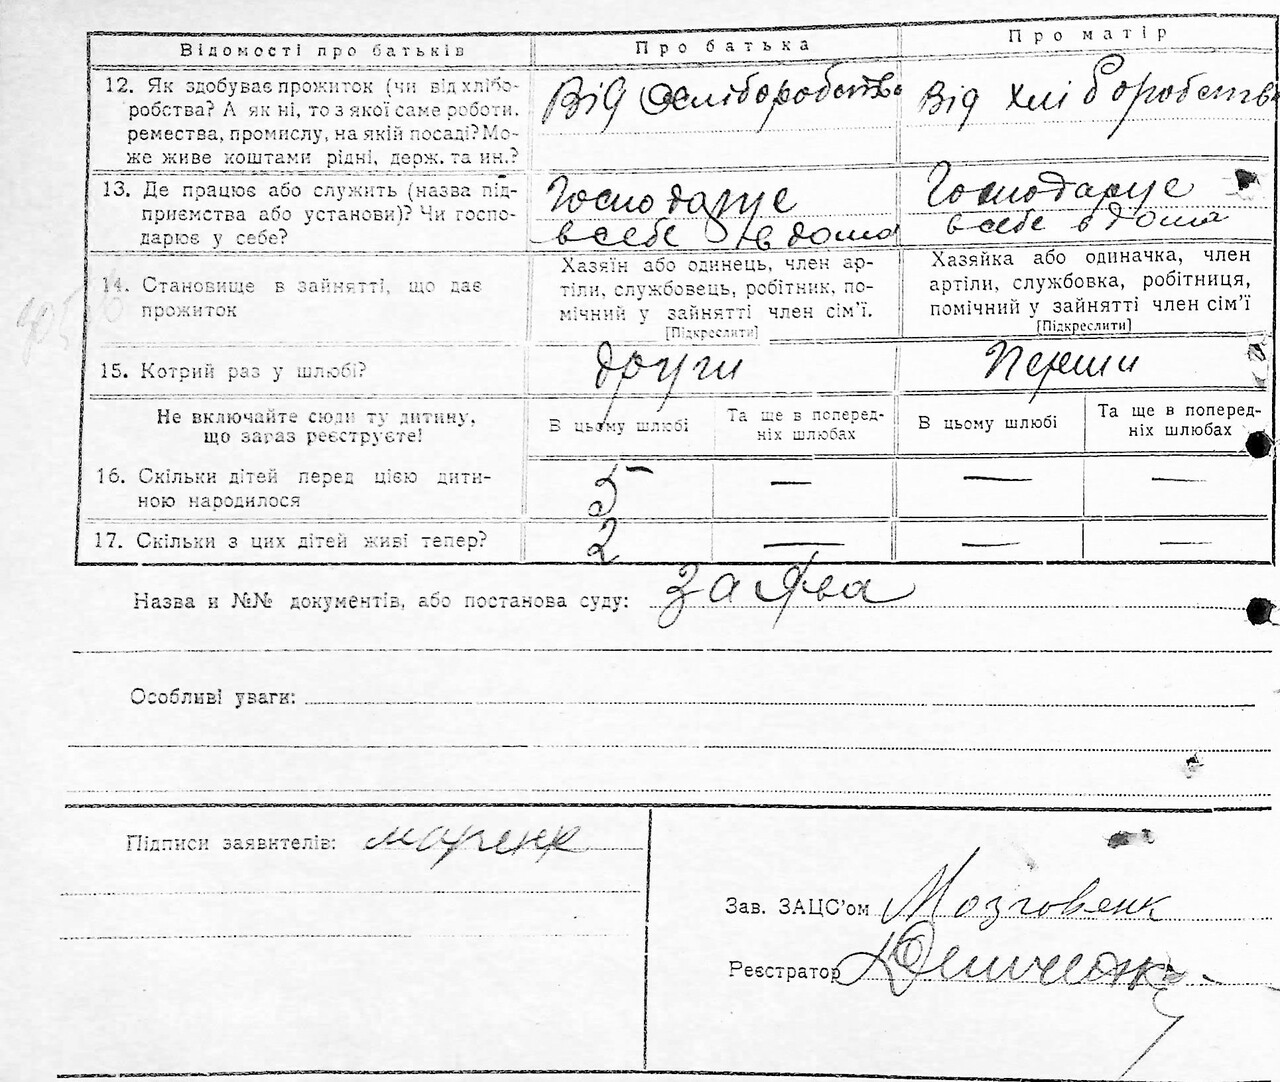 Відомості про батьків
Про батька
Про матір
12. Як здобуває прожиток (чи від хлібо-
робства? А як ні, то з якої саме роботи,
ремества, промислу, на якій посаді? Мо-
же живе коштами рідні, держ. та ин.?
Від хліборобства
Від хліборобства
13. Де працює або служить (назва під-
приємства або установи)? Чи госпо-
дарює у себе?
Господарує
в себе в дома
Господарує
в себе в дома
14. Становище в зайнятті, що дає
прожиток
Хазяїн або одинець, член ар-
тіли, службовець, робітник, по-
мічний у зайнятті член сім'ї.
[Підкреслити]
Хазяйка або одиначка, член
артіли, службовка, робітниця,
помічний у зайнятті член сім'ї
[Підкреслити]
15. Котрий раз у шлюбі?
други
перши
Не включайте сюди ту дитину,
що зараз реєструєте!
В цьому шлюбі
Та ще в поперед-
ніх шлюбах
В цьому шлюбі
Та ще в поперед-
ніх шлюбах
16. Скільки дітей перед цією дити-
ною народилося
5 — — —
17. Скільки з цих дітей живі тепер?
2 — — —
Назва и №№ документів, або постанова суду: заява
Особливі уваги:
Підписи заявителів: маренк
Зав. ЗАЦС'ом Мозговенк
Реєстратор